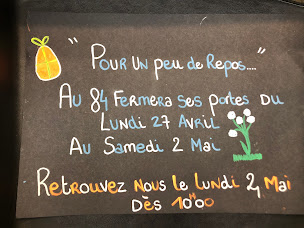 "Pour un peu de Repos...."
Au 84 Fermera ses portes du
Lundi 27 Avril
Au Samedi 2 Mai
Retrouvez nous le lundi 4 Mai
Dès 10h00